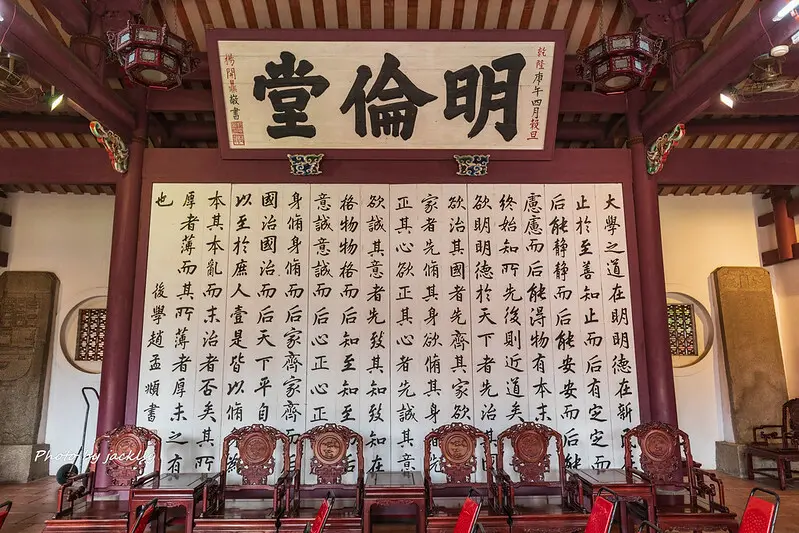 明倫堂
乾隆庚午四月穀旦
楊開鼎敬書
大學之道在明明德在新
止於至善知止而后有定定而
后能静静而后能安安而后能
慮慮而后能得物有本末
終始知所先後則近道矣
欲明明德於天下者先治
欲治其國者先齊其家欲
家者先脩其身欲脩其身
正其心欲正其心者先誠其意
欲誠其意者先致其知致知在
格物物格而后知至知至
意誠意誠而后心正心正
身脩身脩而后家齊家齊而
國治國治而后天下平自
以至於庶人壹是皆以脩
本其本亂而末治者否矣其所
厚者薄而其所薄者厚未之有
也
後學趙孟頫書
Photo by jackli